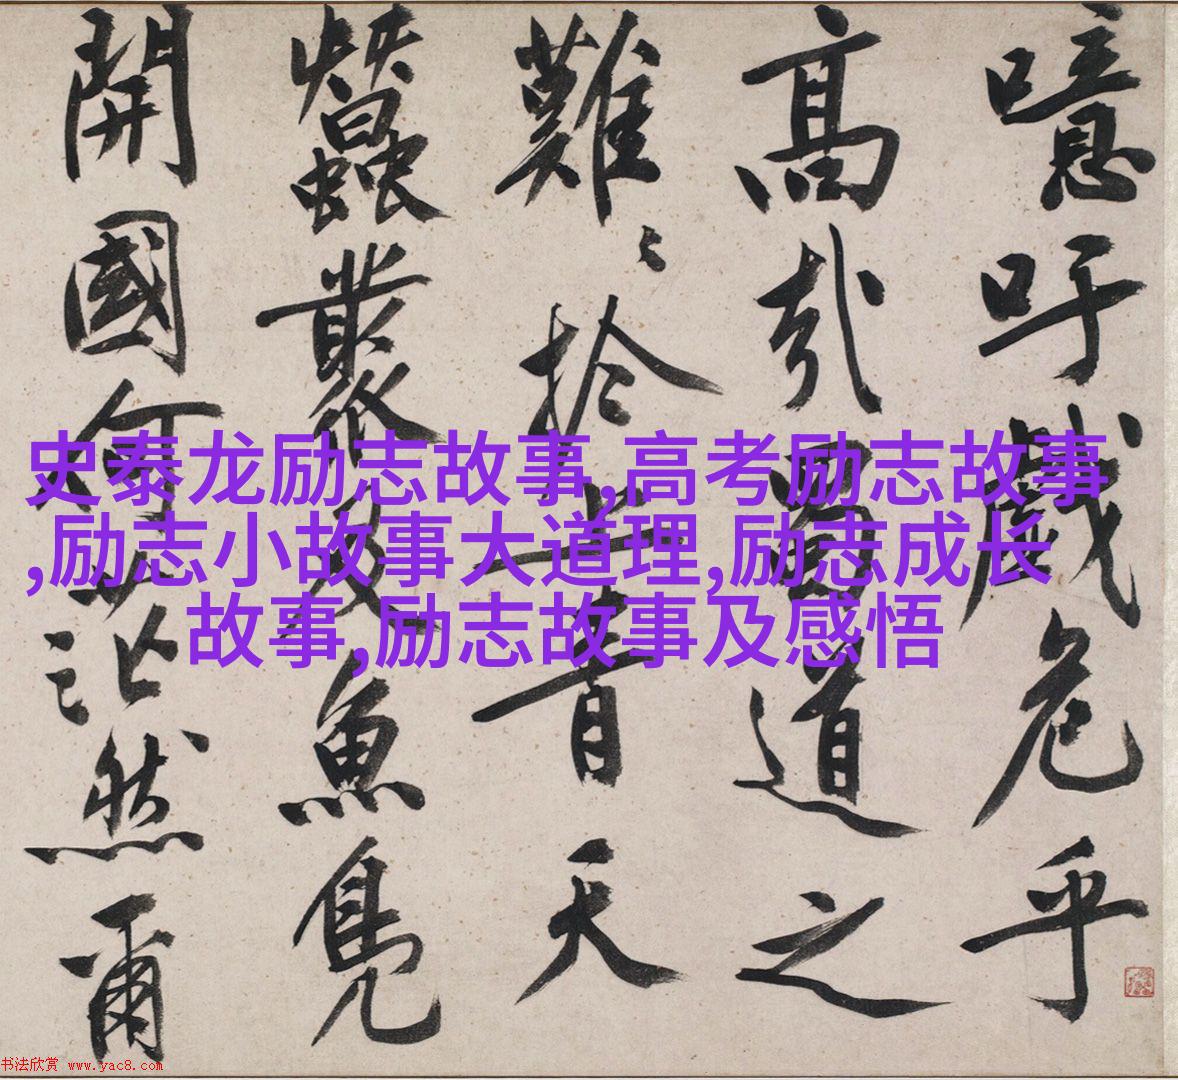 噫吁戲危乎
高哉蜀道之
難〻於上青天
蠶叢及魚鳧
開國何茫然爾
史泰龙励志故事,高考励志故事
,励志小故事大道理,励志成长
故事,励志故事及感悟
书法欣赏 www.yac8.com